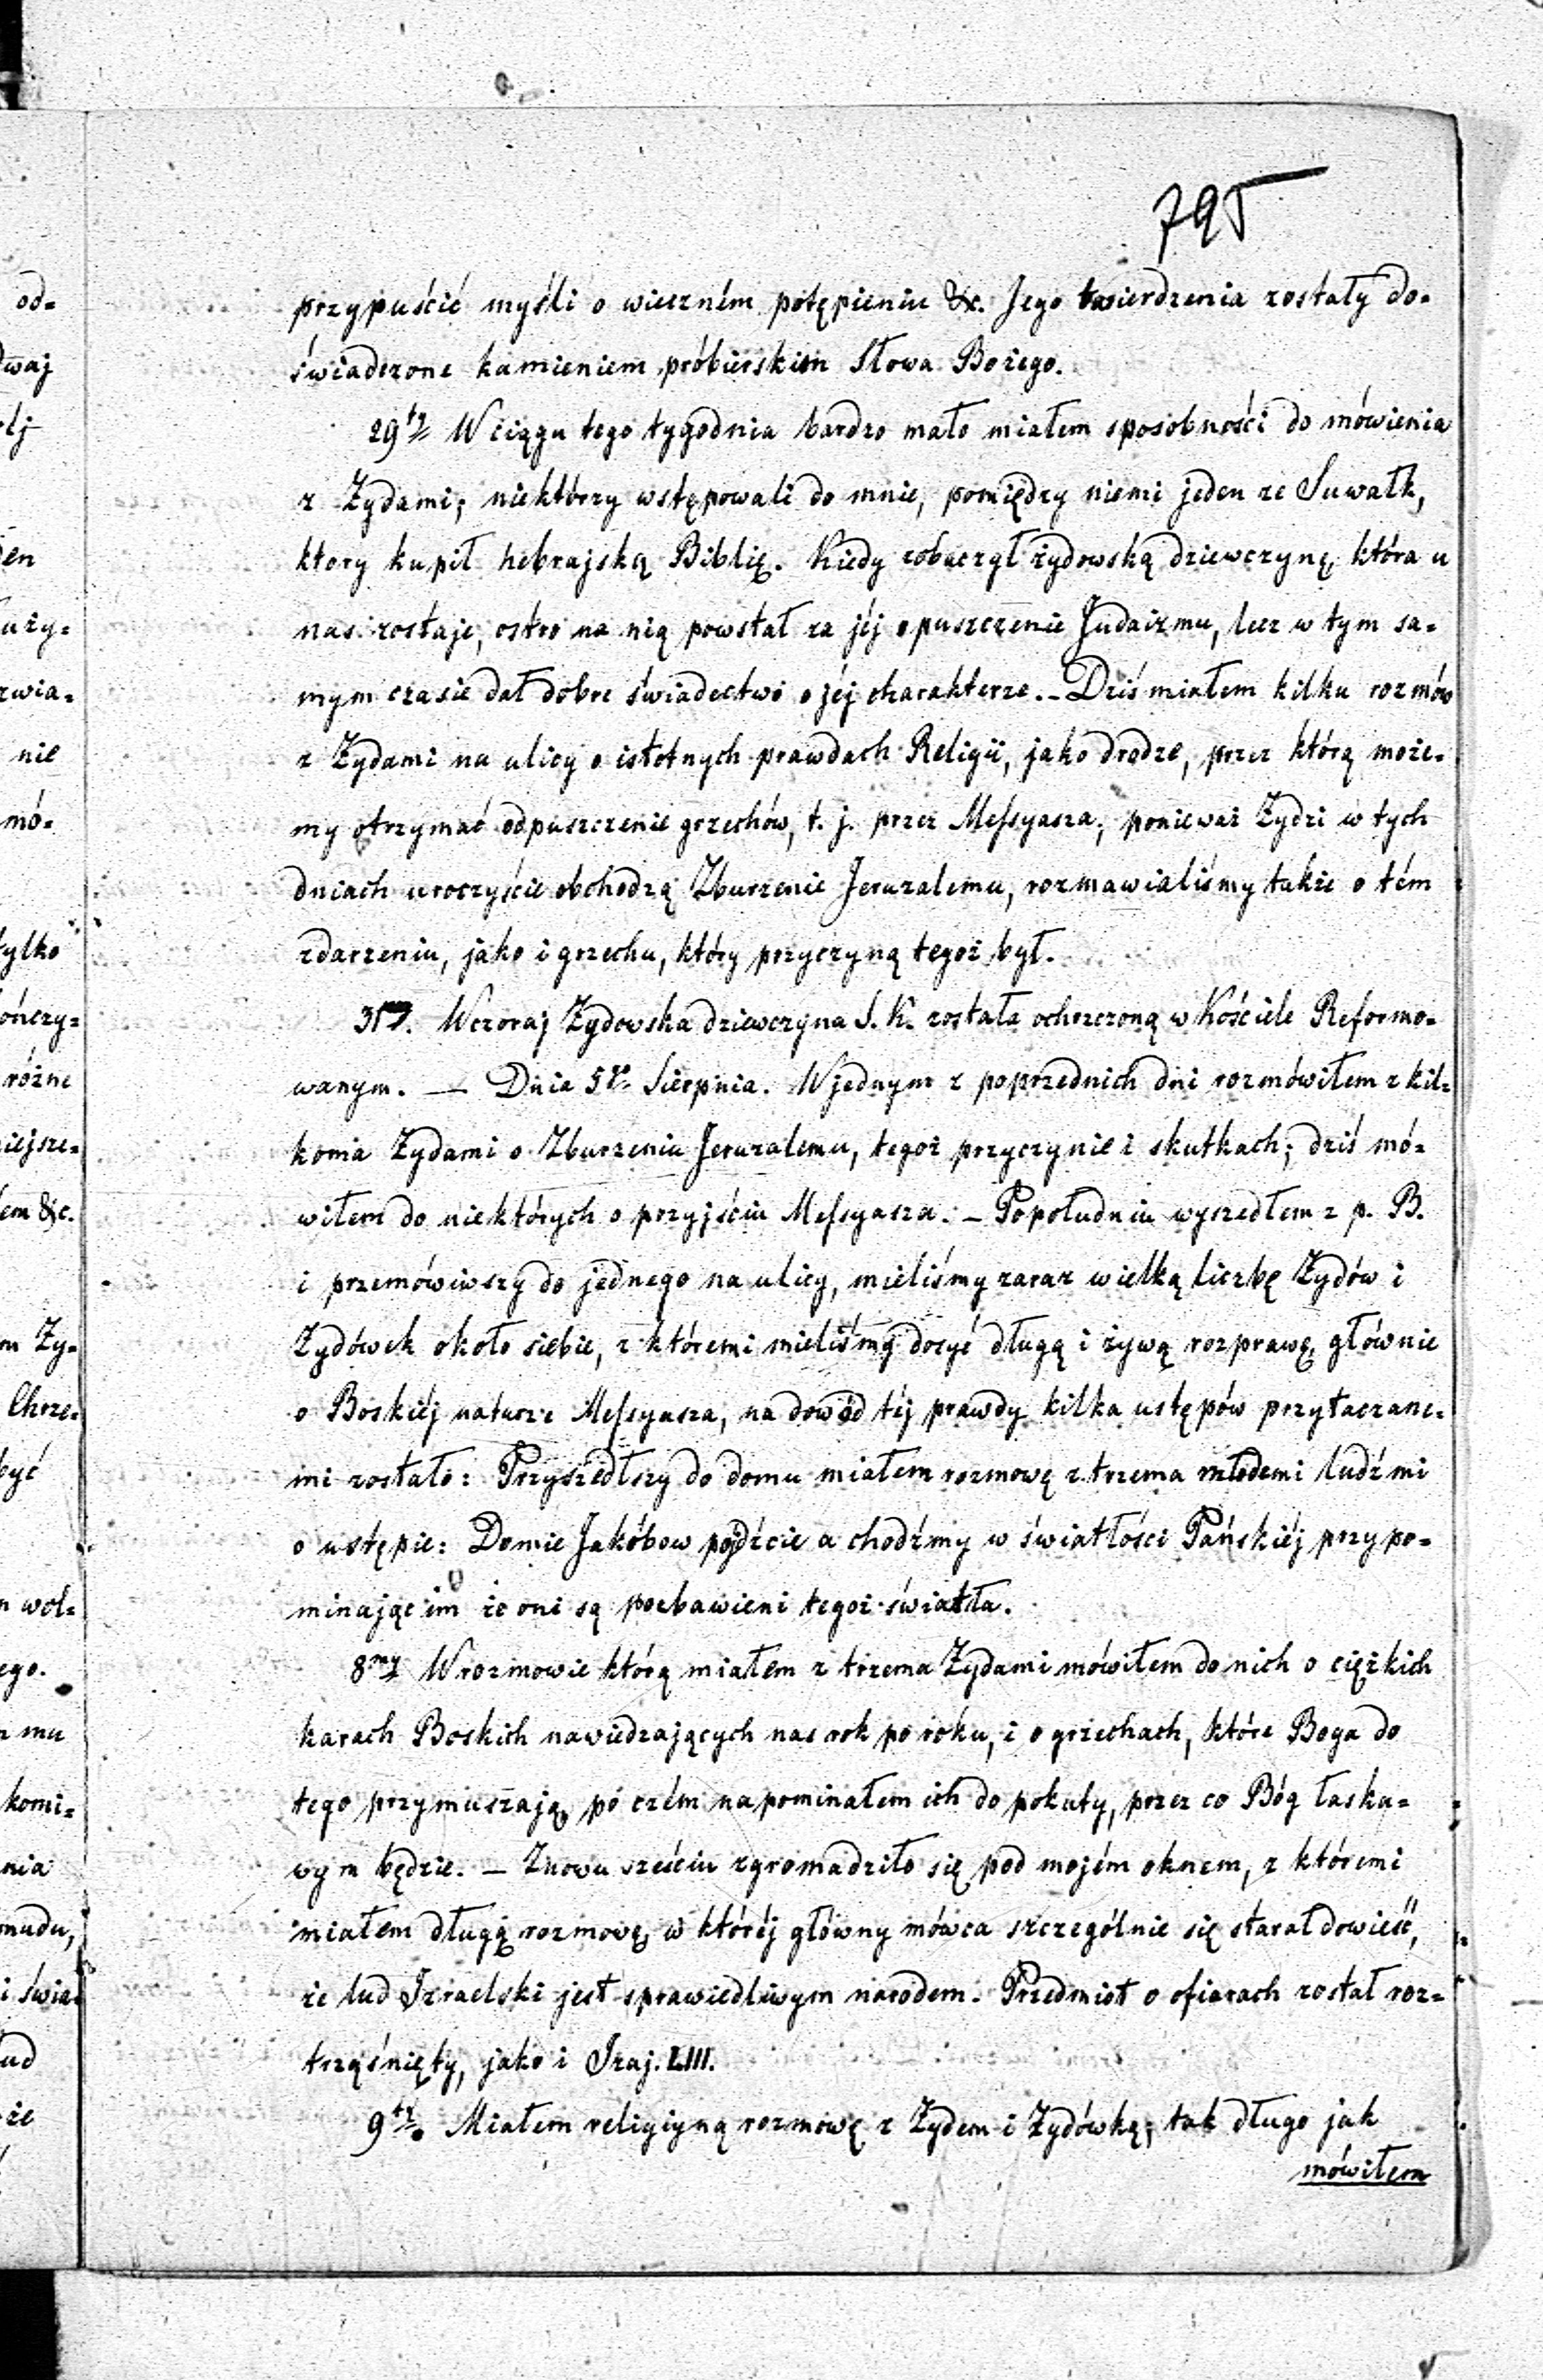 795
przypuścić myśli o wieczném potępieniu &c. Jego twierdzenia zostały do=
świadczone kamieniem próbierskim Słowa Bożego.
29ty W ciągu tego tygodnia bardzo mało miałem sposobności do mówienia
z Żydami; niektórzy wstępowali do mnie, pomiędzy niemi jeden ze Suwałk,
ktory kupił hebrajską Biblię. Kiedy zobaczył żydowską dziewczynę, która u
nas zostaje, ostro na nią powstał za jéj opuszczenie Judaizmu, lecz w tym sa=
mym czasie dał dobre świadectwo o jéj charakterze. – Dziś miałem kilku rozmów
z Żydami na ulicy o istotnych prawdach Religii, jako drodze, przez którą może=
my otrzymać odpuszczenie grzechów, t. j. przez Messyasza; ponieważ Żydzi w tych
dniach uroczyście obchodzą Zburzenie Jeruzalemu, rozmawialiśmy także o tém
zdarzeniu, jako i grzechu, który przyczyną tegoż był.
31my. Wczoraj Żydowska dziewczyna S. K. została ochrzczoną w Kościele Reformo=
wanym. — Dnia 5go Sierpnia. W jednym z poprzednich dni rozmówiłem z kil=
koma Żydami o Zburzeniu Jeruzalemu, tegoż przyczynie i skutkach; dziś mó=
wiłem do niektórych o przyjściu Messyasza. – Popołudniu wyszedłem z p. B.
i przemówiwszy do jednego na ulicy, mieliśmy zaraz wielką liczbę Żydów i
Żydówek około siebie, z któremi mieliśmy dosyć długą i żywą rozprawę, głównie
o Boskiéj naturze Messyasza, na dowód téj prawdy kilka ustępów przytaczane=
mi zostało: Przyszedłszy do domu miałem rozmowę z trzema młodemi ludźmi
o ustępie: Domie Jakóbow pójdźcie a chodźmy w światłości Pańskiéj przypo=
minając im że oni są pozbawieni tegoż światła.
8my W rozmowie którą miałem z trzema Żydami mówiłem do nich o ciężkich
karach Boskich nawiedzających nas rok po roku, i o grzechach, które Boga do
tego przymuszają, po czém napominałem ich do pokuty, przez co Bóg łaska=
wym będzie. – Znowu sześciu zgromadziło się pod mojém oknem, z któremi
miałem długą rozmowę, w któréj główny mówca szczególnie się starał dowieść,
że lud Izraelski jest sprawiedliwym narodem. Przedmiot o ofiarach został roz=
trząśnięty, jako i Izaj. LIII.
9ty. Miałem religiyną rozmowę z Żydem i Żydówką; tak długo jak
mówiłem